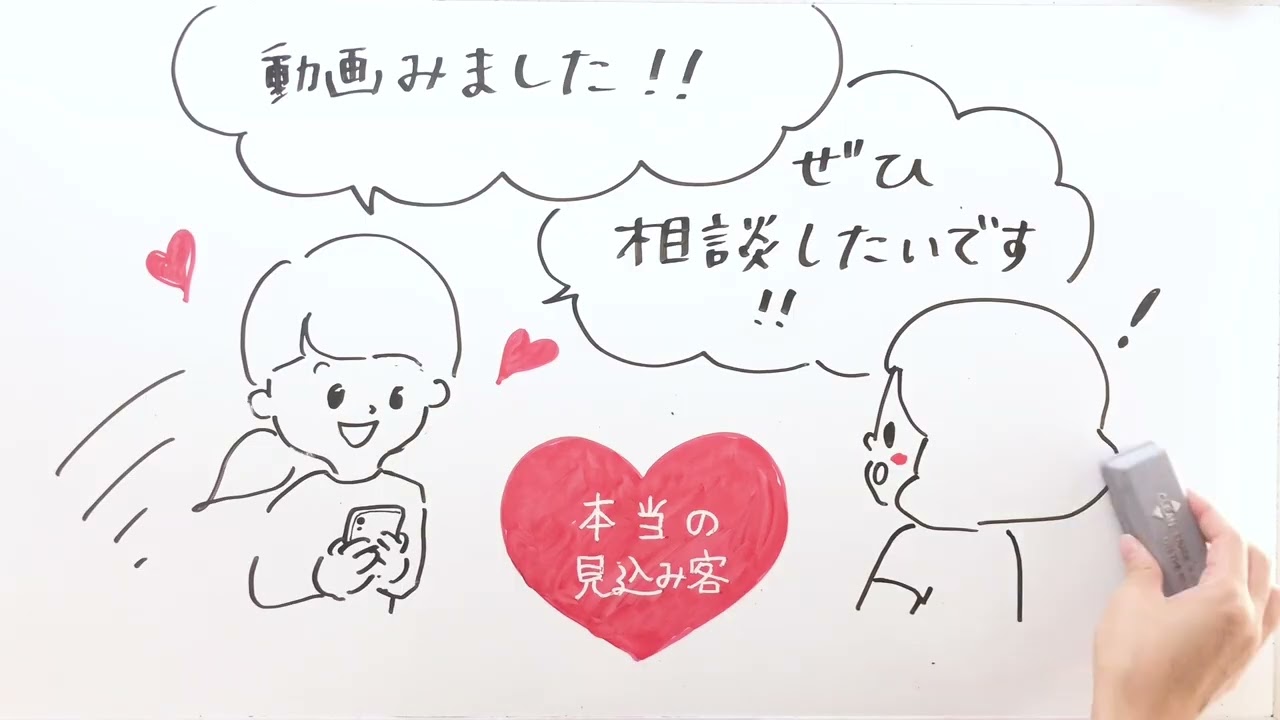 動画みました!!
ぜひ
相談したいです
!!
!
本当の
見込み客